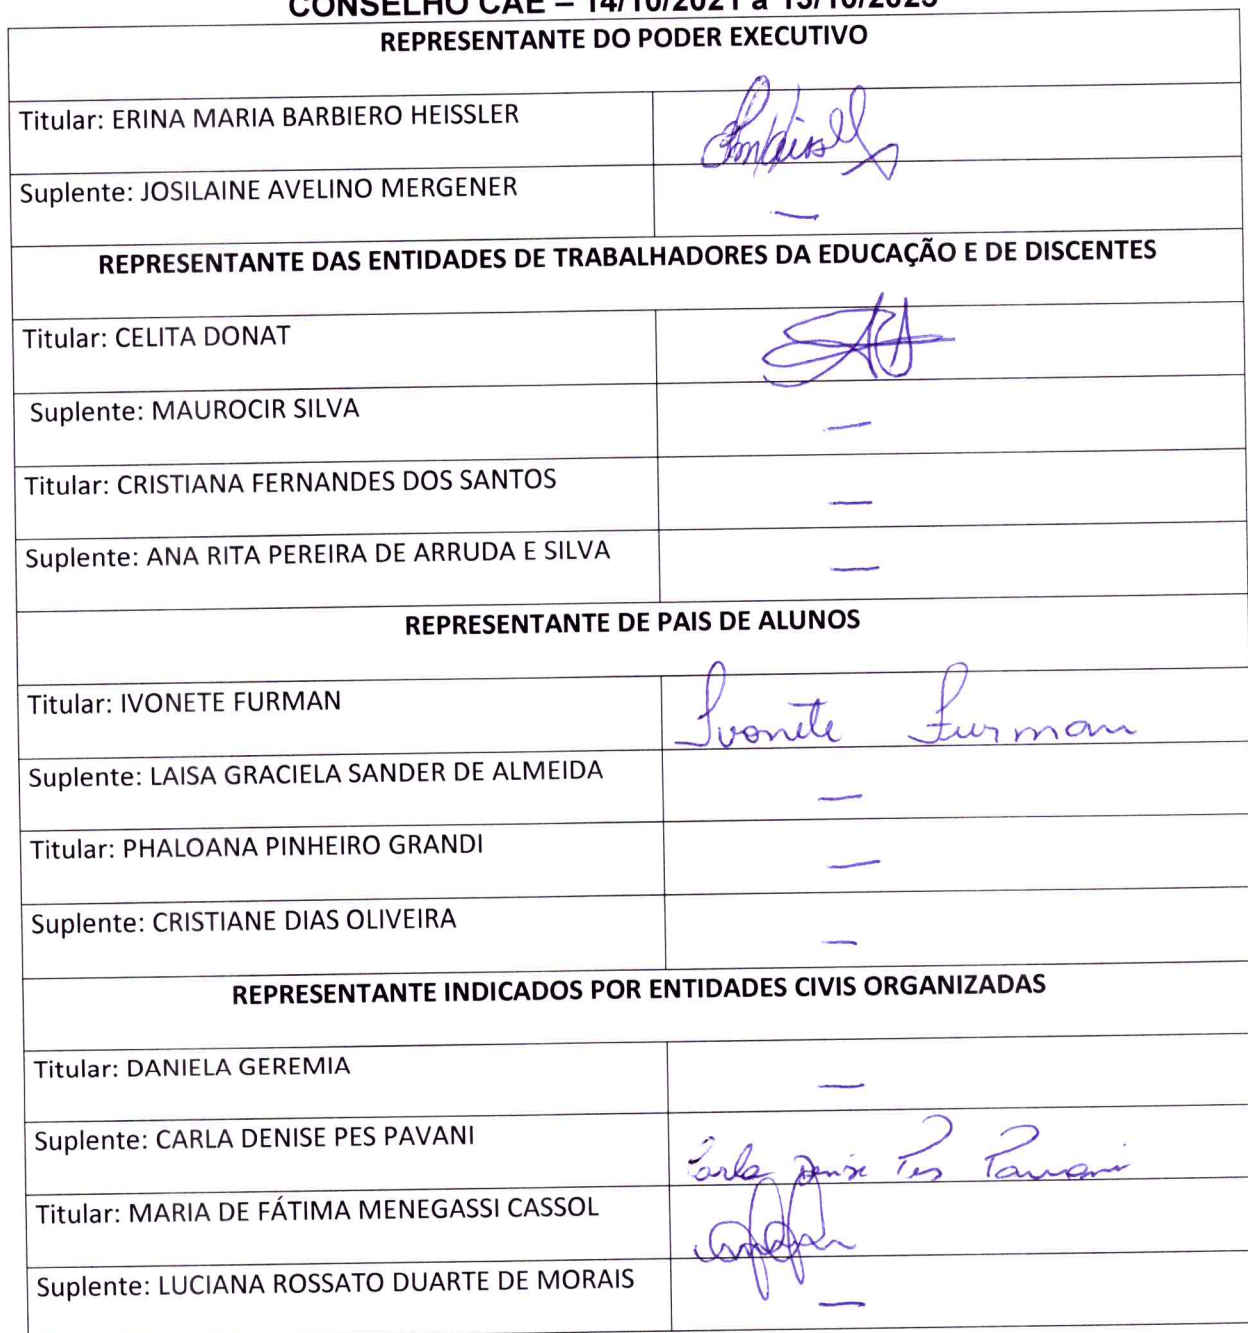 CONSELHO CAE – 14/10/2021 a 13/10/2025
REPRESENTANTE DO PODER EXECUTIVO
Titular: ERINA MARIA BARBIERO HEISSLER
Suplente: JOSILAINE AVELINO MERGENER —
REPRESENTANTE DAS ENTIDADES DE TRABALHADORES DA EDUCAÇÃO E DE DISCENTES
Titular: CELITA DONAT
Suplente: MAUROCIR SILVA —
Titular: CRISTIANA FERNANDES DOS SANTOS —
Suplente: ANA RITA PEREIRA DE ARRUDA E SILVA —
REPRESENTANTE DE PAIS DE ALUNOS
Titular: IVONETE FURMAN Ivonete Furman
Suplente: LAISA GRACIELA SANDER DE ALMEIDA —
Titular: PHALOANA PINHEIRO GRANDI —
Suplente: CRISTIANE DIAS OLIVEIRA —
REPRESENTANTE INDICADOS POR ENTIDADES CIVIS ORGANIZADAS
Titular: DANIELA GEREMIA —
Suplente: CARLA DENISE PES PAVANI Carla Denise Pes Pavani
Titular: MARIA DE FÁTIMA MENEGASSI CASSOL
Suplente: LUCIANA ROSSATO DUARTE DE MORAIS —